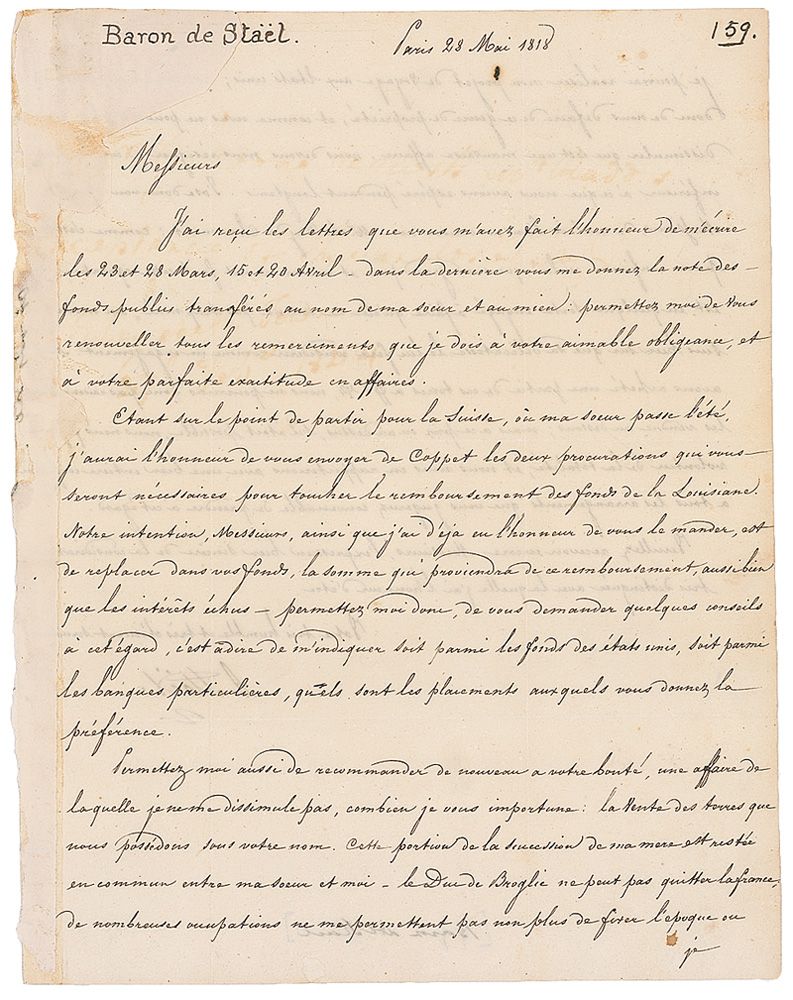 Baron de Staël.
Paris 28 Mai 1818
159.
Messieurs
J'ai reçu les lettres que vous m'avez fait l'honneur de m'écrire
les 23 et 28 Mars, 15 et 20 Avril - dans la dernière vous me donnez la note des
fonds publics transférés au nom de ma soeur et au mien : permettez moi de vous
renouveller tous les remerciments que je dois à votre aimable obligeance, et
à votre parfaite exactitude en affaires.
Etant sur le point de partir pour la Suisse, où ma soeur passe l'été,
j'aurai l'honneur de vous envoyer de Coppet les deux procurations qui vous
seront nécessaires pour toucher le remboursement des fonds de la Louisiane.
Notre intention, Messieurs, ainsi que j'ai déja eu l'honneur de vous le mander, est
de replacer dans vos fonds, la somme qui proviendra de ce remboursement, aussi bien
que les intérêts échus - permettez moi donc, de vous demander quelques conseils
à cet égard, c'est adire de m'indiquer soit parmi les fonds des états unis, soit parmi
les banques particulières, quels sont les placements auxquels vous donnez la
préférence.
Permettez moi aussi de recommander de nouveau a votre bonté, une affaire de
laquelle je ne me dissimule pas, combien je vous importune : la vente des terres que
nous possédons sous votre nom. Cette portion de la succession de ma mere est restée
en commun entre ma soeur et moi - le Duc de Broglie ne peut pas quitter la france,
de nombreuses occupations ne me permettent pas non plus de fixer l'epoque ou
je